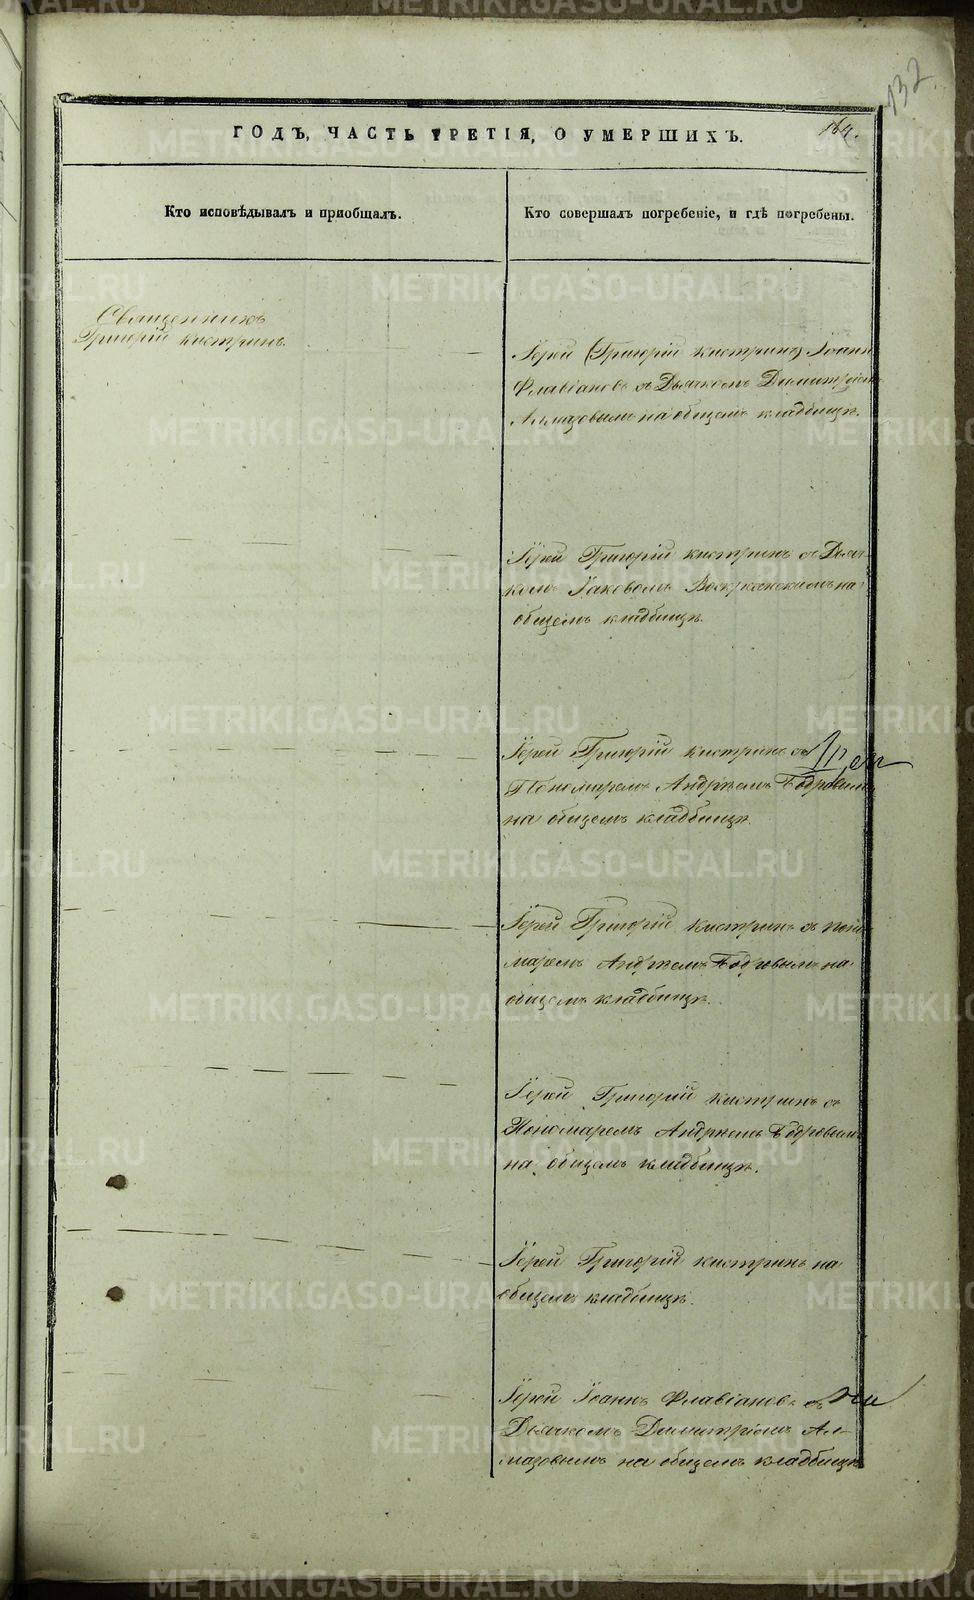 132
ГОДЪ, ЧАСТЬ ТРЕТІЯ, О УМЕРШИХЪ.
164.
Кто исповѣдывалъ и пріобщалъ.
Кто совершалъ погребеніе, и гдѣ погребены.
Священникъ
Григорій Кистринъ.
Іерей (Григорій Кистринъ) Іоаннъ
Флавіановъ съ Дьячкомъ Димитріемъ
Алмазовымъ на общемъ кладбищѣ.
Іерей Григорій Кистринъ съ Дьяч-
комъ Іаковомъ Воскресенскимъ на
общемъ кладбищѣ.
Іерей Григорій Кистринъ съ
Пономаремъ Андреемъ Бодровымъ
на общемъ кладбищѣ.
Іерей Григорій Кистринъ съ поно-
маремъ Андреемъ Бодровымъ на
общемъ кладбищѣ.
Іерей Григорій Кистринъ съ
Пономаремъ Андреемъ Бодровымъ
на общемъ кладбищѣ.
Іерей Григорій Кистринъ на
общемъ кладбищѣ.
Іерей Іоаннъ Флавіановъ съ
Дьячкомъ Димитріемъ Ал-
мазовымъ на общемъ кладбищѣ
METRIKI.GASO-URAL.RU